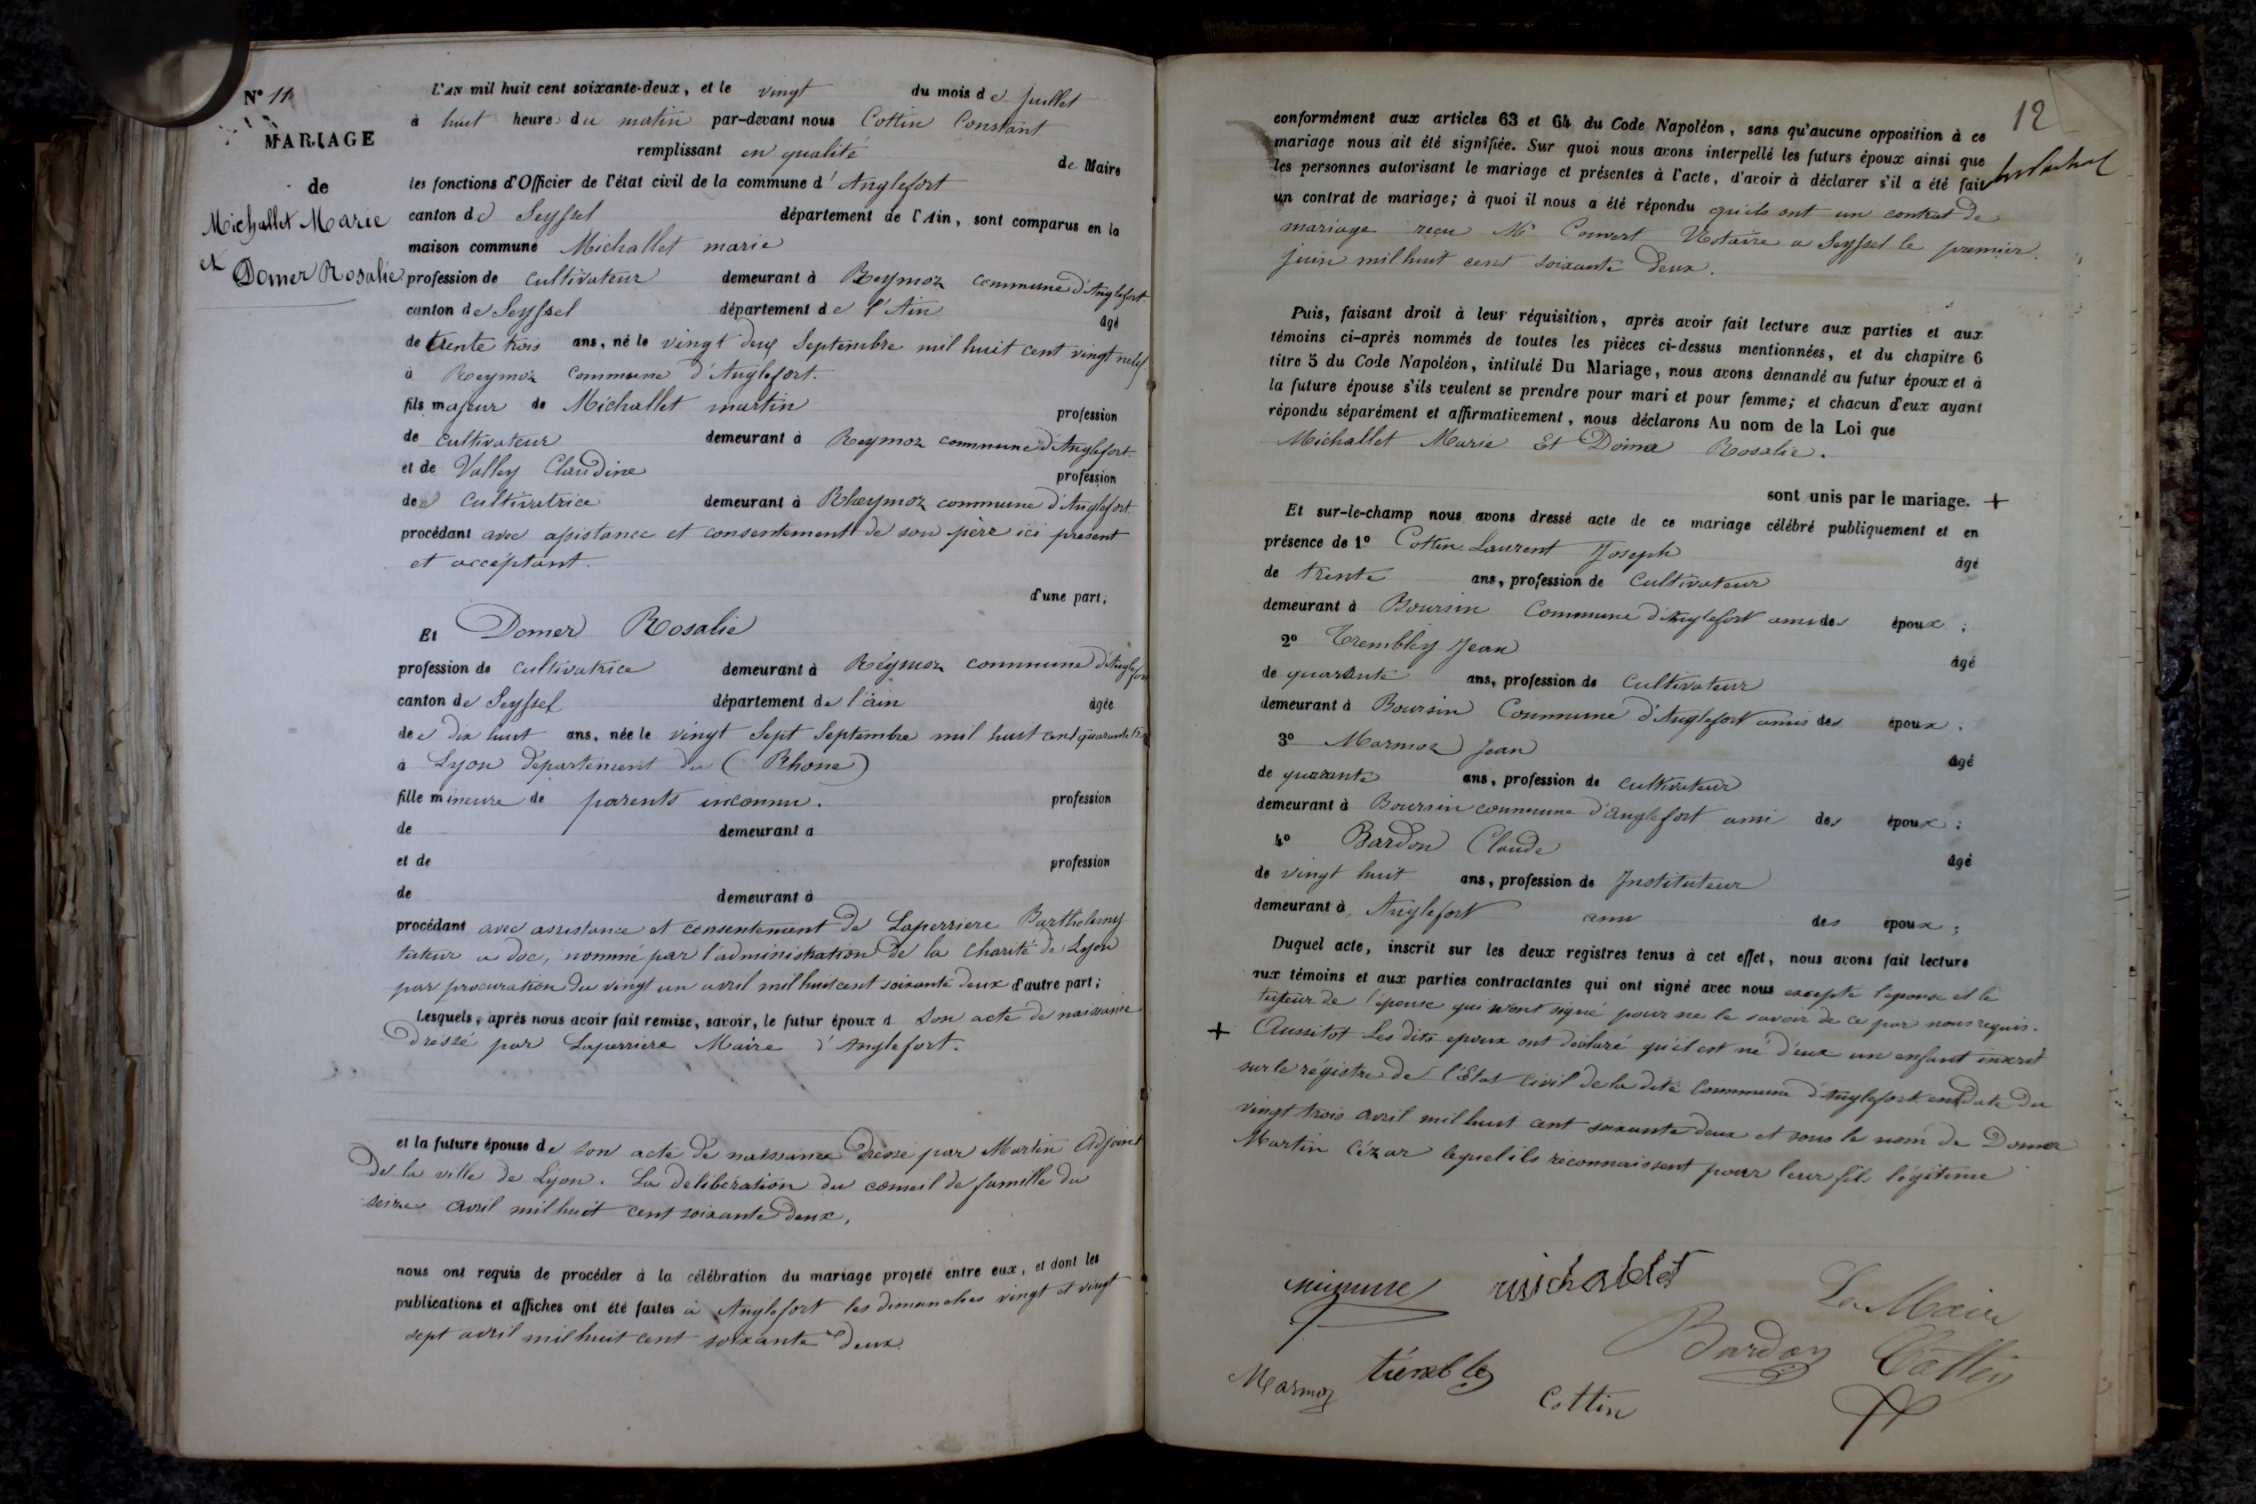 N° 11
MARIAGE
de
Michallet Marie
et
Domer Rosalie
L'AN mil huit cent soixante-deux, et le vingt du mois de juillet
à huit heures du matin par-devant nous Cottin Constant
remplissant en qualité de Maire
les fonctions d'Officier de l'état civil de la commune d'Anglefort
canton de Seyssel département de l'Ain, sont comparus en la
maison commune Michallet marie
profession de cultivateur demeurant à Reymoz commune d'Anglefort
canton de Seyssel département de l'Ain âgé
de trente trois ans, né le vingt deux Septembre mil huit cent vingt neuf
à Reymoz Commune d'Anglefort.
fils majeur de Michallet martin profession
de cultivateur demeurant à Reymoz commune d'Anglefort
et de Valley Claudine profession
de cultivatrice demeurant à Rheymoz commune d'Anglefort
procédant avec assistance et consentement de son père ici présent
et acceptant.
d'une part;
Et Domer Rosalie
profession de cultivatrice demeurant à Réymoz commune d'Anglefort
canton de Seyssel département de l'ain âgée
de dix huit ans, née le vingt Sept Septembre mil huit cent quarante
à Lyon département du (Rhone)
fille mineure de parents inconnu. profession
de demeurant à
et de profession
de demeurant à
procédant avec assistance et consentement de Laperriere Barthelemy
tuteur a doc, nommé par l'administration de la Charité de Lyon
par procuration du vingt un avril mil huit cent soixante deux d'autre part;
Lesquels, après nous avoir fait remise, savoir, le futur époux d son acte de naissance
dressé par Laperriere Maire d'Anglefort.
et la future épouse de son acte de naissance dressé par Martin Adjoint
de la ville de Lyon. La délibération du conseil de famille du
seize avril mil huit cent soixante deux,
nous ont requis de procéder à la célébration du mariage projeté entre eux, et dont les
publications et affiches ont été faites à Anglefort les dimanches vingt et vingt
sept avril mil huit cent soixante deux
12
conformément aux articles 63 et 64 du Code Napoléon, sans qu'aucune opposition à ce
mariage nous ait été signifiée. Sur quoi nous avons interpellé les futurs époux ainsi que
les personnes autorisant le mariage et présentes à l'acte, d'avoir à déclarer s'il a été fait
un contrat de mariage; à quoi il nous a été répondu qu'ils ont un contrat de
mariage reçu Me Convert Notaire a Seyssel le premier
juin mil huit cent soixante deux.
Puis, faisant droit à leur réquisition, après avoir fait lecture aux parties et aux
témoins ci-après nommés de toutes les pièces ci-dessus mentionnées, et du chapitre 6
titre 5 du Code Napoléon, intitulé Du Mariage, nous avons demandé au futur époux et à
la future épouse s'ils veulent se prendre pour mari et pour femme; et chacun d'eux ayant
répondu séparément et affirmativement, nous déclarons Au nom de la Loi que
Michallet Marie Et Domer Rosalie.
sont unis par le mariage. +
Et sur-le-champ nous avons dressé acte de ce mariage célébré publiquement et en
présence de 1° Cottin Laurent Joseph âgé
de trente ans, profession de Cultivateur
demeurant à Boursin Commune d'Anglefort ami des époux;
2° Trembley Jean âgé
de quarante ans, profession de cultivateur
demeurant à Boursin Commune d'Anglefort amis des époux.
3° Marmoz Jean âgé
de quarante ans, profession de cultivateur
demeurant à Boursin commune d'anglefort ami des époux;
4° Bardon Claude âgé
de vingt huit ans, profession de Instituteur
demeurant à Anglefort ami des époux;
Duquel acte, inscrit sur les deux registres tenus à cet effet, nous avons fait lecture
aux témoins et aux parties contractantes qui ont signé avec nous excepté l'épouse et le
tuteur de l'épouse qui n'ont signé pour ne le savoir de ce par nous requis.
+ Aussitot Les dits epoux ont déclaré qu'il est né d'eux un enfant inscrit
sur le régistre de l'Etat civil de la dite Commune d'Anglefort en date du
vingt trois avril mil huit cent soixante deux et sous le nom de Domer
Martin Cézar lequel ils reconnaissent pour leur fils légitime
michallet
Le Maire
Bardon Cottin
Marmoz
Cottin